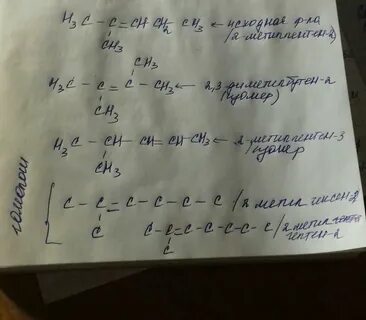 H₃C — C = CH CH₂ CH₃ ← исходная ф-ла
CH₃ (2-метилпентен-2)
CH₃
H₃C — C = C — CH₃ ← 2,3 диметилбутен-2
CH₃ (изомер)
H₃C — CH — CH = CH — CH₃ ← 2 метилпентен-3
CH₃ изомер
гомологи
C — C = C — C — C — C /2 метил гексен-2
C
C — C = C — C — C — C — C /2 метил
C гептен-2